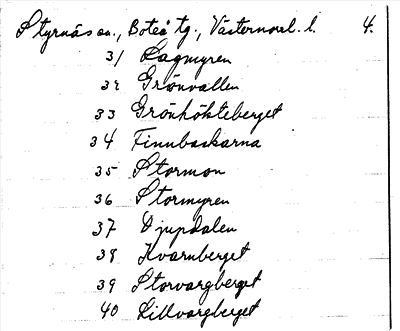 Styrnäs sn., Boteå tg., Västernorrl. l. 4.
31 Lagmyren
32 Grönvallen
33 Grönhökteberget
34 Finnbackarna
35 Stormon
36 Stormyren
37 Djupdalen
38 Kvarnberget
39 Storvargberget
40 Lillvargberget